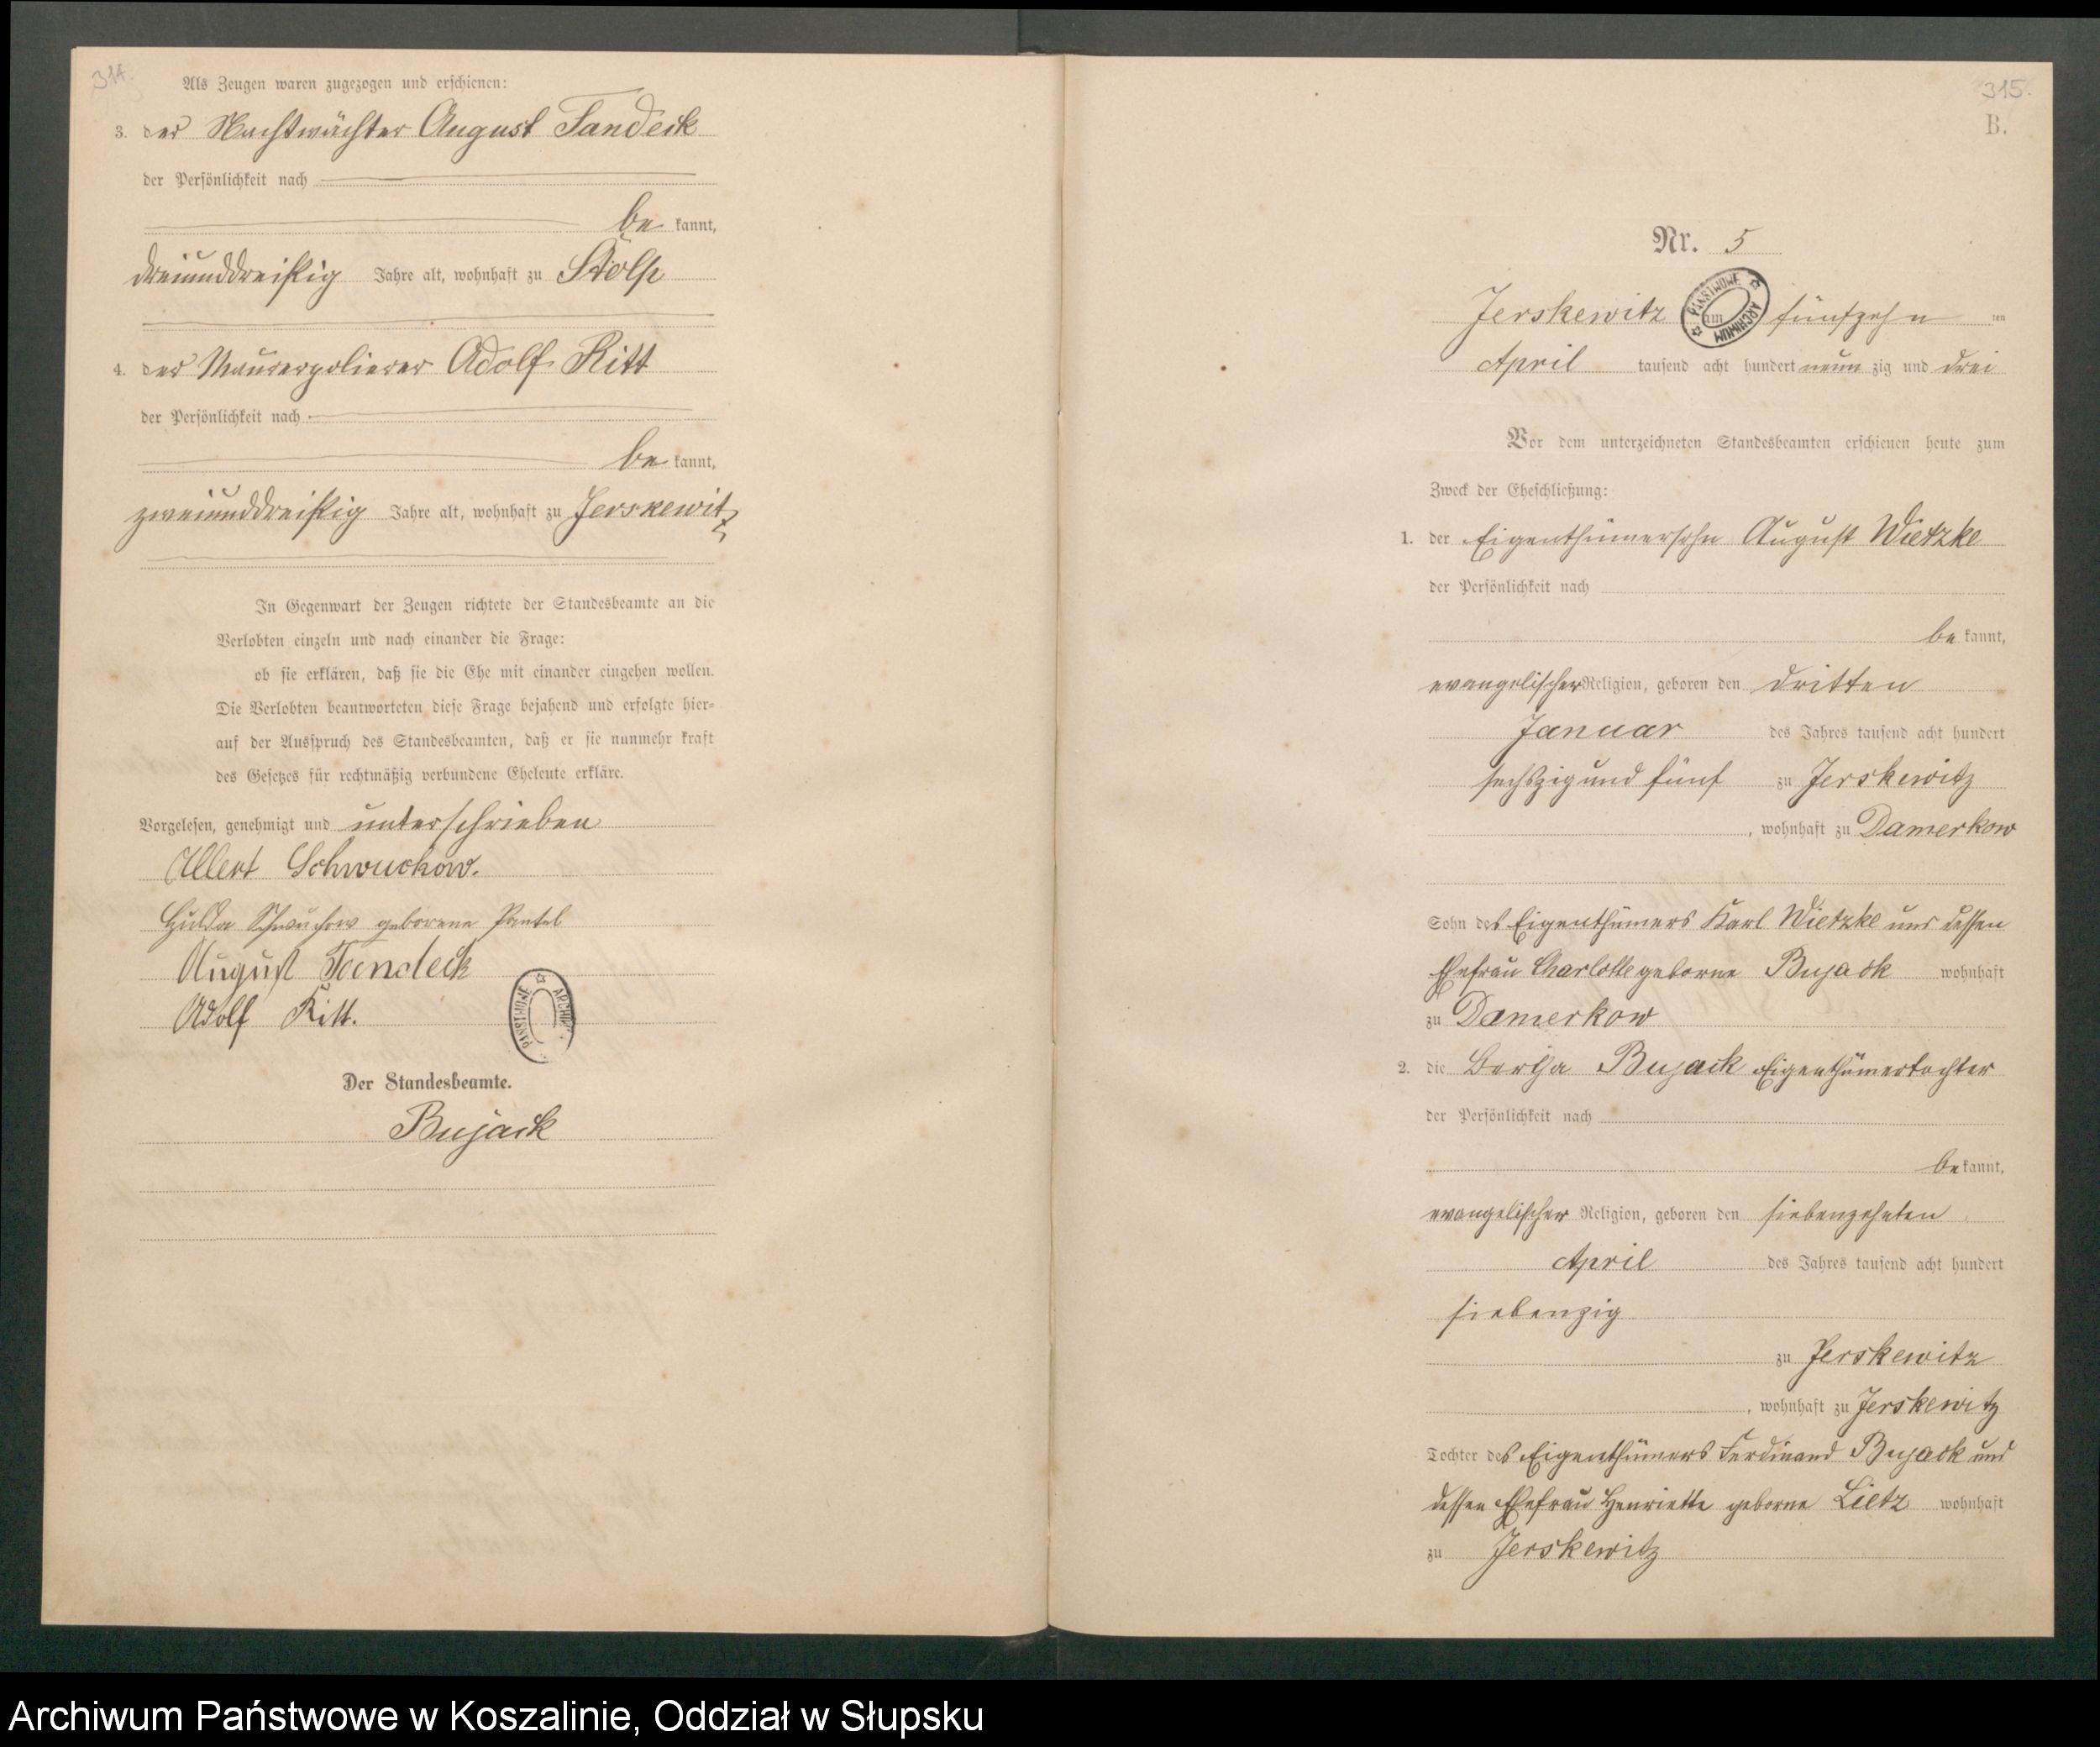 314.
Als Zeugen waren zugezogen und erschienen:
3. der Nachtwächter August Tandeck
der Persönlichkeit nach
be kannt,
dreiunddreißig Jahre alt, wohnhaft zu Stolp
4. der Maurerpolierer Adolf Kitt
der Persönlichkeit nach
be kannt,
zweiunddreißig Jahre alt, wohnhaft zu Jerskewitz
In Gegenwart der Zeugen richtete der Standesbeamte an die
Verlobten einzeln und nach einander die Frage:
ob sie erklären, daß sie die Ehe mit einander eingehen wollen.
Die Verlobten beantworteten diese Frage bejahend und erfolgte hier-
auf der Ausspruch des Standesbeamten, daß er sie nunmehr kraft
des Gesetzes für rechtmäßig verbundene Eheleute erkläre.
Vorgelesen, genehmigt und unterschrieben
Albert Schwuchow.
Hulda Schwuchow geborene Pantel
August Tandeck
Adolf Kitt.
PAŃSTWOWE ARCHIWUM
Der Standesbeamte.
Bujack
315.
B.
Nr. 5
Jerskewitz am fünfzehn ten
PAŃSTWOWE ARCHIWUM
April tausend acht hundert neun zig und drei
Vor dem unterzeichneten Standesbeamten erschienen heute zum
Zweck der Eheschließung:
1. der Eigenthümersohn August Wietzke
der Persönlichkeit nach
be kannt,
evangelischer Religion, geboren den dritten
Januar des Jahres tausend acht hundert
sechszig und fünf zu Jerskewitz
, wohnhaft zu Damerkow
Sohn des Eigenthümers Karl Wietzke und dessen
Ehefrau Charlotte geborne Bujack wohnhaft
zu Damerkow
2. die Bertha Bujack Eigenthümertochter
der Persönlichkeit nach
be kannt,
evangelischer Religion, geboren den siebenzehnten
April des Jahres tausend acht hundert
siebenzig
zu Jerskewitz
, wohnhaft zu Jerskewitz
Tochter des Eigenthümers Ferdinand Bujack und
dessen Ehefrau Henriette geborne Lietz wohnhaft
zu Jerskewitz
Archiwum Państwowe w Koszalinie, Oddział w Słupsku